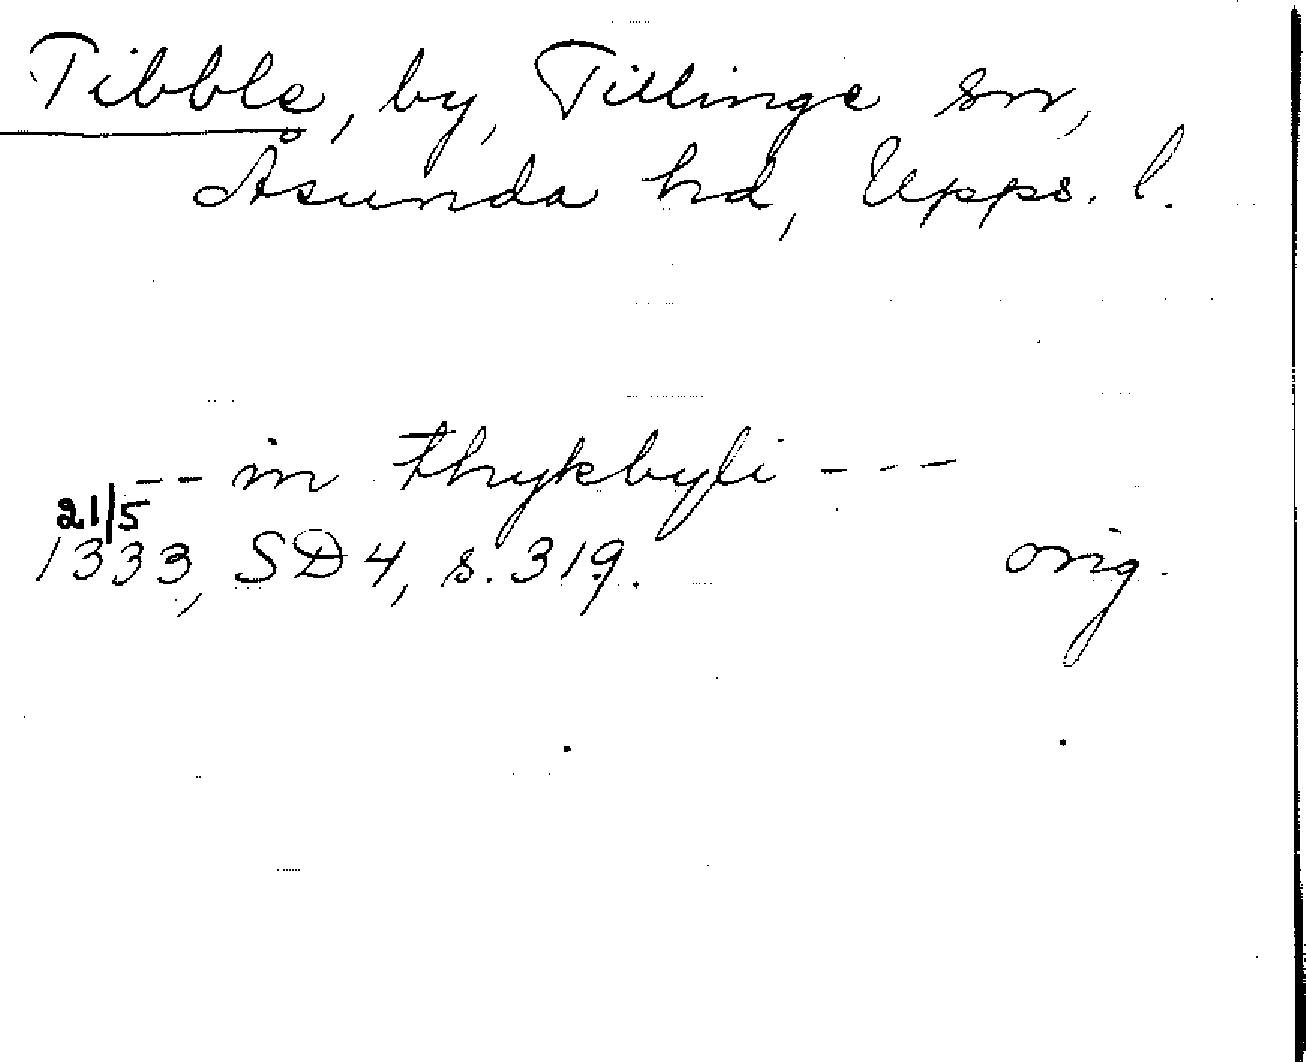 Tibble, by, Tillinge sn,
Åsunda hd, Upps. l.
-- in thykbyli ---
21/5
1333, SD 4, s. 319. orig.